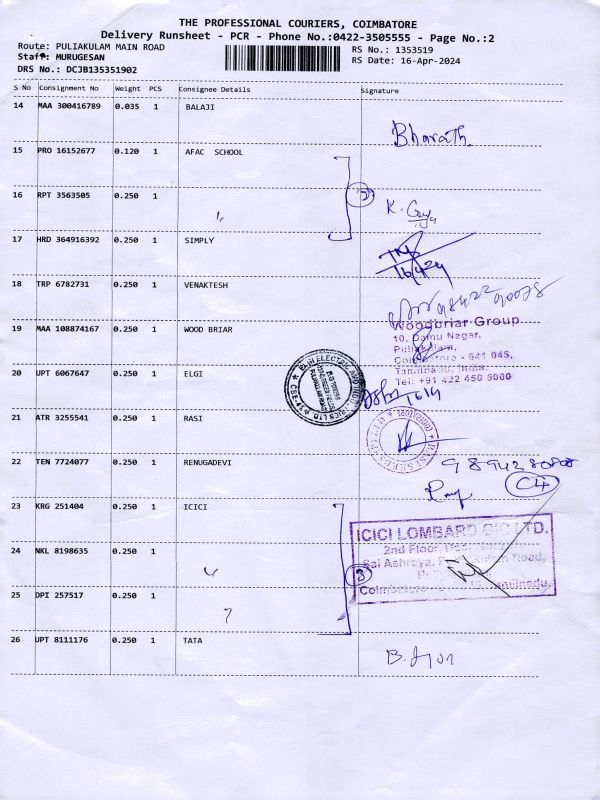 THE PROFESSIONAL COURIERS, COIMBATORE
Delivery Runsheet - PCR - Phone No.:0422-3505555 - Page No.:2
Route: PULIAKULAM MAIN ROAD RS No.: 1353519
Staff: MURUGESAN RS Date: 16-Apr-2024
DRS No.: DCJB135351902
S No Consignment No Weight PCS Consignee Details Signature
14 MAA 300416789 0.035 1 BALAJI
Bharath.
15 PRO 16152677 0.120 1 AFAC SCHOOL
16 RPT 3563505 0.250 1
K.
17 HRD 364916392 0.250 1 SIMPLY
16/4/24
18 TRP 6782731 0.250 1 VENAKTESH
19 MAA 108874167 0.250 1 WOOD BRIAR
Woodbriar Group
10, Damu Nagar,
Puliakulam,
Coimbatore - 641 045,
Tamilnadu, India.
Tel: +91 422 450 5000
20 UPT 6067647 0.250 1 ELGI
21 ATR 3255541 0.250 1 RASI
22 TEN 7724077 0.250 1 RENUGADEVI
C4
23 KRG 251404 0.250 1 ICICI
ICICI LOMBARD GIC LTD.
2nd Floor,
Sai Ashraya,
Road,
Coimbatore
Tamilnadu.
24 NKL 8198635 0.250 1
3
25 DPI 257517 0.250 1
26 UPT 8111176 0.250 1 TATA